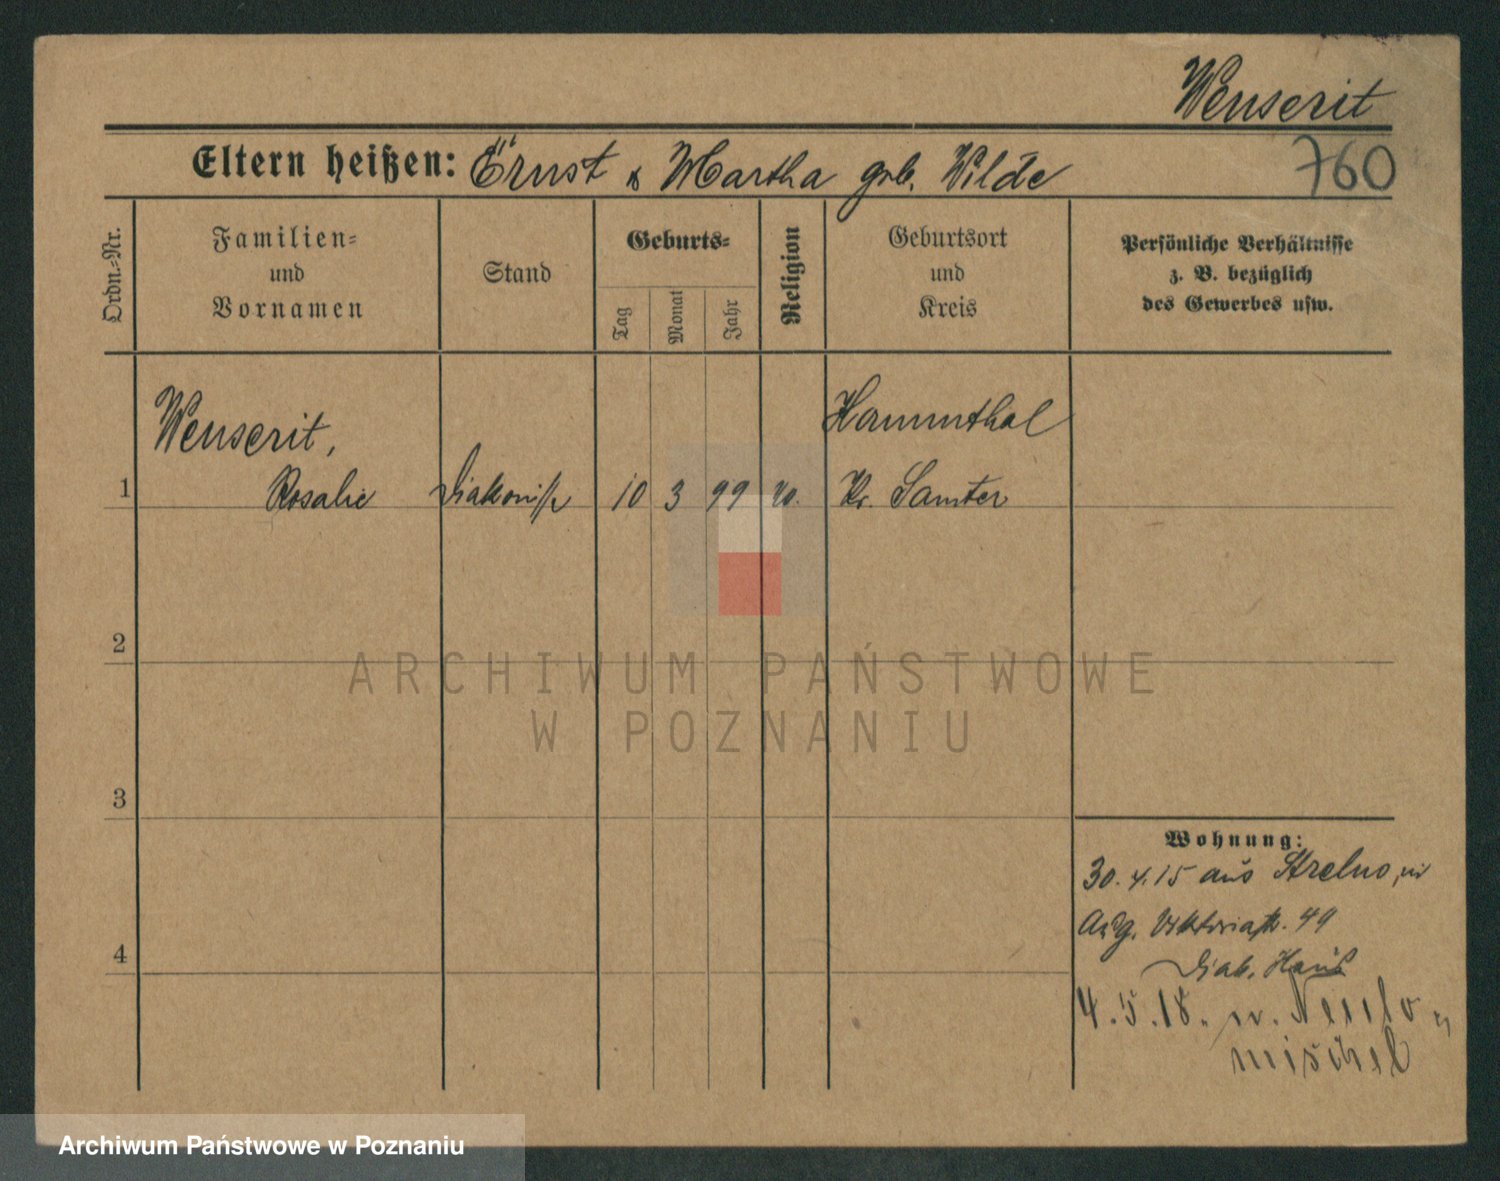 Wenserit
Eltern heißen: Ernst & Martha geb. Wilde
760
Ordn.-Nr.
Familien-
und
Vornamen
Stand
Geburts-
Tag
Monat
Jahr
Religion
Geburtsort
und
Kreis
Persönliche Verhältnisse
z. B. bezüglich
des Gewerbes usw.
Wenserit,
Hammthal
1 Rosalie Diakonisse 10 3 99 Kr. Samter
2
ARCHIWUM PAŃSTWOWE
W POZNANIU
3
Wohnung:
30.4.15 aus Strelno,
Aug. Viktoriastr. 49
4
Diak. Haus
4.5.18. n. Neuto-
mischel
Archiwum Państwowe w Poznaniu